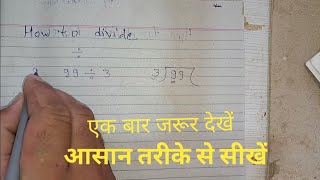 How to divide
÷
99 ÷ 3 3)99(
एक बार जरूर देखें
आसान तरीके से सीखें